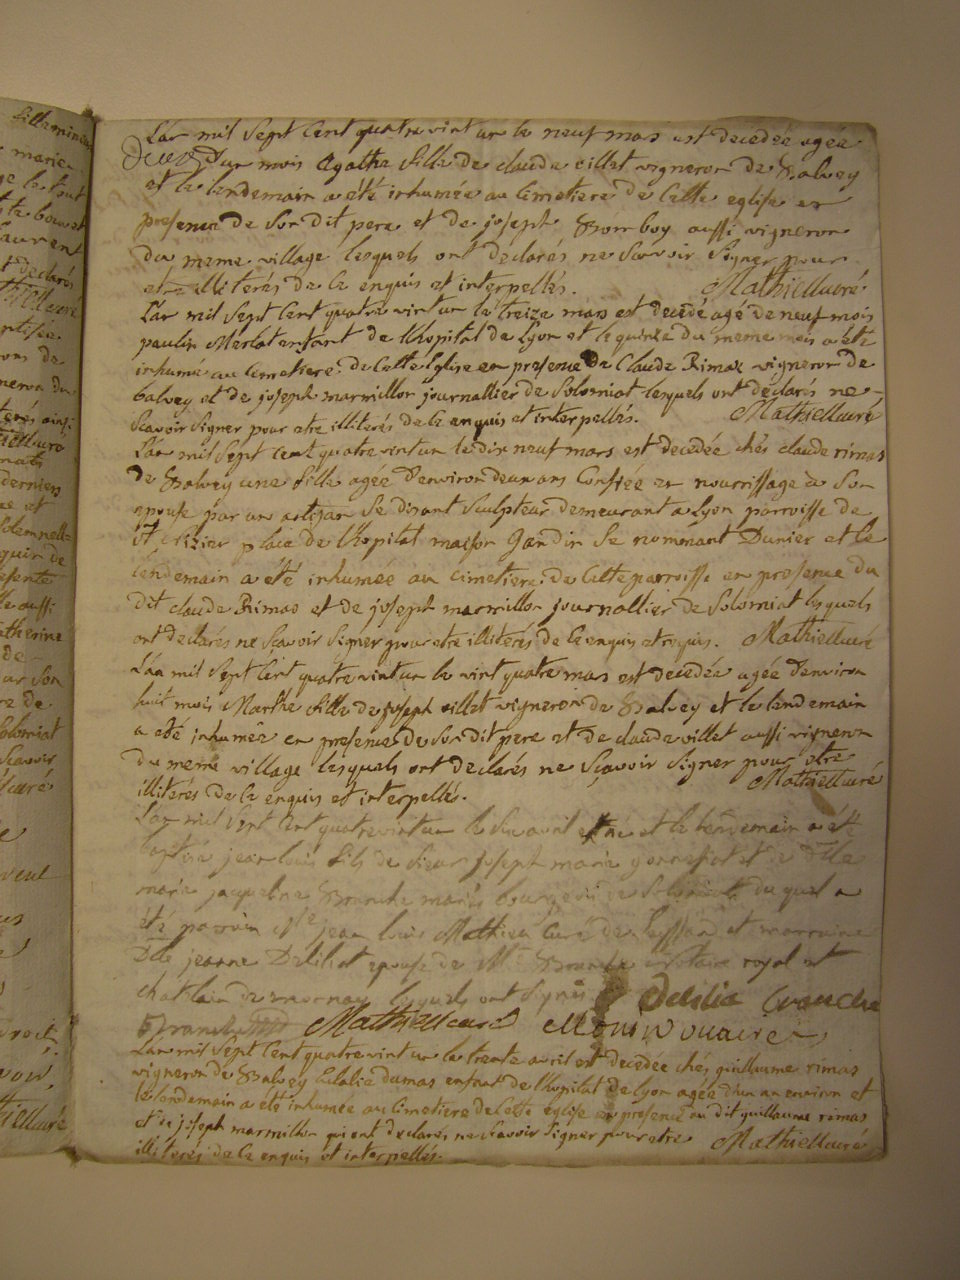 L'an mil sept cent quatre vint un le neuf mars est decedée agée
d'un mois Agathe fille de claude villet vigneron de Balvey
et le lendemain a été inhumée au cimetiere de cette eglise en
presence de son dit pere et de joseph Bomboy aussi vigneron
du meme village lesquels ont declarés ne scavoir signer pour
etre illiterés de ce enquis et interpellés. Mathieu curé
L'an mil sept cent quatre vint un le treize mars est decedé agé de neuf mois
paulin Merlat enfant de l'hopital de Lyon et le quinze du meme mois a été
inhumé au cimetiere de cette Eglise en presence de Claude Rimas vigneron de
balvey et de joseph marmillon journallier de Solomiat lesquels ont declarés ne
scavoir signer pour etre illiterés de ce enquis et interpellés. Mathieu curé
L'an mil sept cent quatre vint un le dix neuf mars est decedée chés claude rimas
de Balvey une fille agée d'environ deux ans confiée en nourrissage à son
epouse par un artisan se disant sculpteur demeurant a Lyon parroisse de
st Nizier place de l'hopital maison Gandin se nommant Dunier et le
lendemain a été inhumée au cimetiere de cette parroisse en presence du
dit claude Rimas et de joseph marmillon journallier de Solomiat lesquels
ont declarés ne scavoir signer pour etre illiterés de ce enquis et requis. Mathieu curé
L'an mil sept cent quatre vint un le vint quatre mars est decedée agée d'environ
huit mois Marthe fille de joseph villet vigneron de Balvey et le lendemain
a été inhumée en presence de son dit pere et de claude villet aussi vigneron
du meme village lesquels ont declarés ne scavoir signer pour etre
illiterés de ce enquis et interpellés. Mathieu curé
L'an mil sept cent quatre vint un le six avril est né et le lendemain a été
baptisé jean louis fils de sieur joseph marie et de dlle
marie jacqueline Branche mariés bourgeois de Solomiat duquel a
été parrain jean louis Mathieu curé de et marraine
Dlle jeanne Delilia epouse de Mr Branche notaire royal et
chatelain de mornay lesquels ont signés Delilia Branche
Branche Mathieu curé
L'an mil sept cent quatre vint un le trente avril est decedée chés guillaume rimas
vigneron de Balvey Eulalie dumas enfant de l'hopital de Lyon agée d'un an environ et
le lendemain a été inhumée au cimetiere de cette eglise en presence du dit guillaume rimas
et de joseph marmillon qui ont declarés ne scavoir signer pour etre
illiterés de ce enquis et interpellés. Mathieu curé